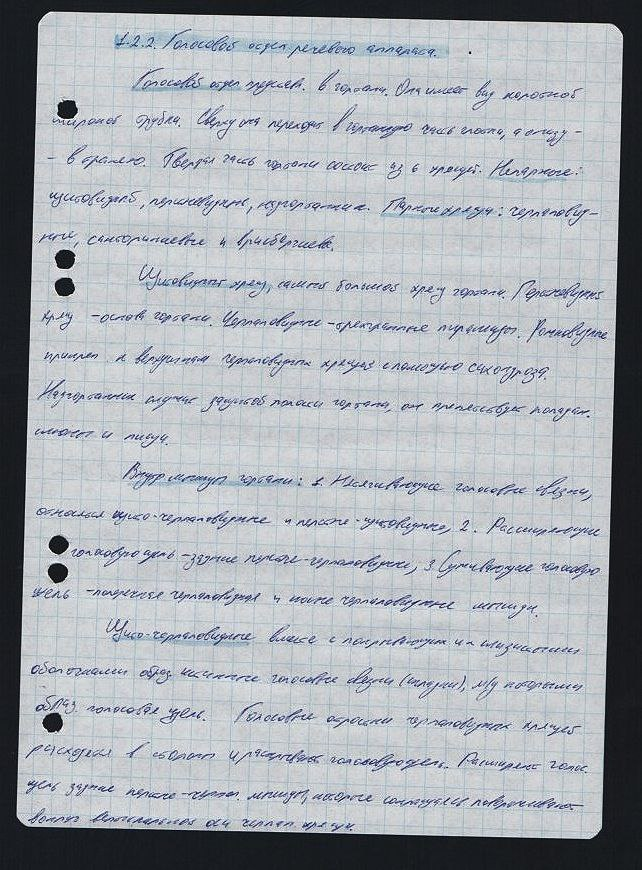 1.2.2. Голосовой отдел речевого аппарата.
Голосовой отдел представ. в гортани. Она имеет вид короткой
широкой трубки. Сверху она переходит в гортанную часть глотки, а снизу -
- в трахею. Твердая часть гортани состоит из 6 хрящей. Непарные:
щитовидный, перстневидный, надгортанник. Парные хрящи: черпаловид-
ные, санториниевые и врисберговы.
Щитовидный хрящ, самый большой хрящ гортани. Перстневидный
хрящ - основа гортани. Черпаловидные - трехгранные пирамиды. Рожковидные
прикреп к верхушкам черпаловидных хрящей с помощью
Надгортанник служит защитой полости гортани, он препятствует попадан.
слюны и пищи.
Внутр мышцы гортани: 1. Натягивающие голосовые связки,
относятся щито-черпаловидные и персте-щитовидные, 2. Расширяющие
голосовую щель - задние персте-черпаловидные, 3. Суживающие голосовую
щель - поперечная черпаловидная и косые черпаловидные мышцы.
Щито-черпаловидные вместе с покрывающими их слизистыми
оболочками образ истинные голосовые связки (складки), м/у которыми
образ. голосовая щель. Голосовые отростки черпаловидных хрящей
расходятся в стороны и раскрывают голосовую щель. Расширяют голос.
щель задние персте-черпал. мышцы, которые сокращаясь поворачивают
вокруг вертикальной оси черпал. хрящи.